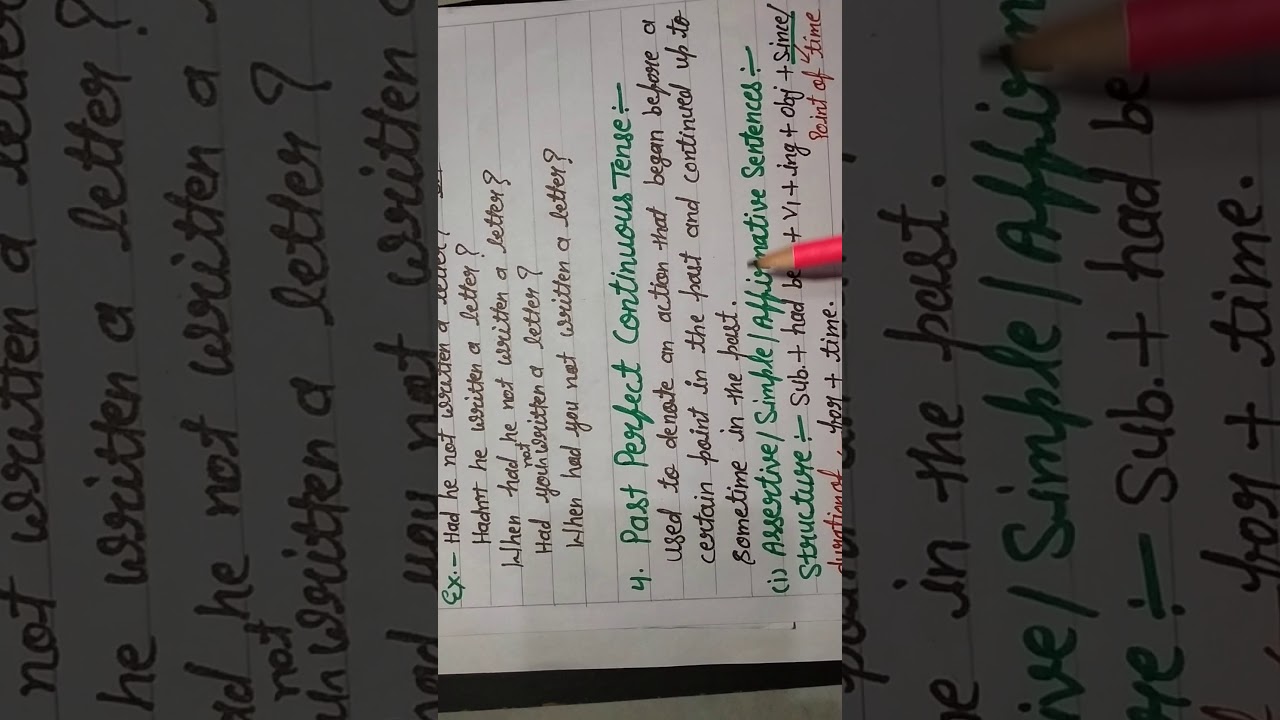 Ex.- Had he not written a letter?
Hadn't he written a letter?
When had he not written a letter?
not
Had you written a letter?
When had you not written a letter?
4. Past Perfect Continuous Tense:-
used to denote an action that began before a
certain point in the past and continued up to
sometime in the past.
(i) Assertive/Simple/Affirmative Sentences:-
Structure:- Sub.+ had be + V1 + ing + obj + since/
Point of time
for + time.